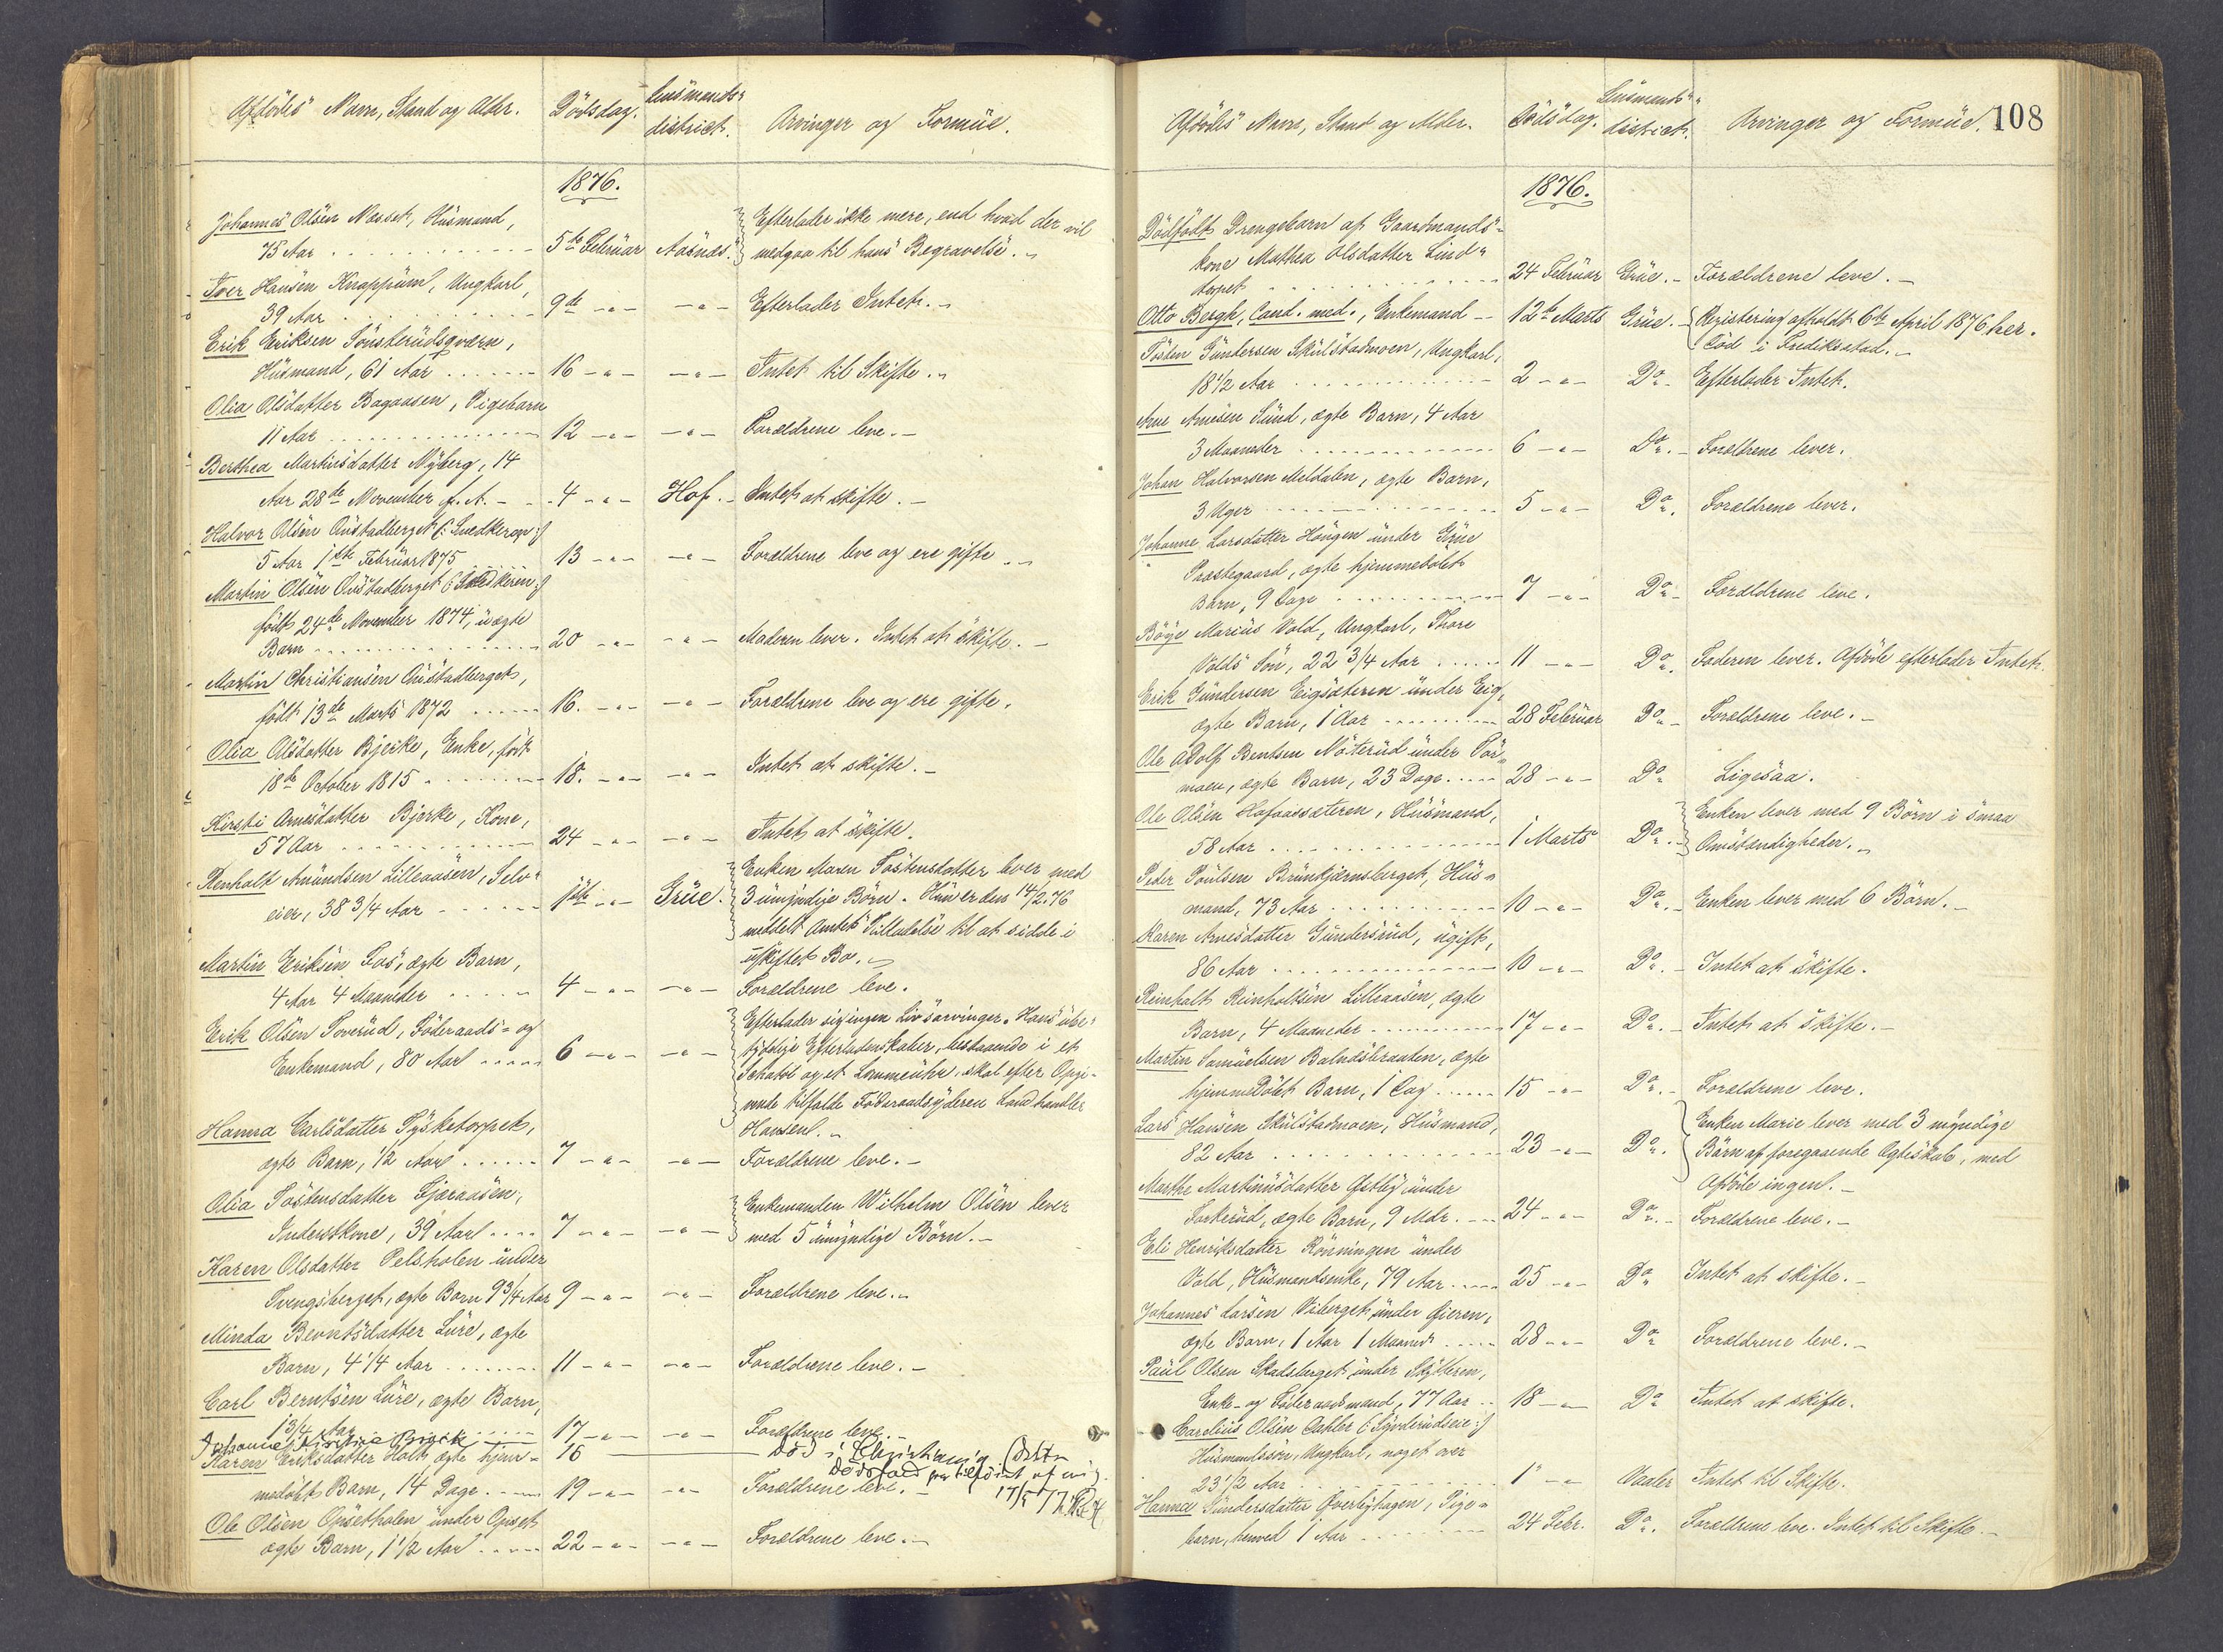 Afdödes Navn, Stand og Alder. Dödsdag. Lensmands-
district. Arvinger og Formue.
1876.
Johannes Olsen Næsset, Husmand,
75 Aar 5te Februar Aasnæs. Efterlader ikke mere, end hvad der vil
medgaa til hans Begravelse.
Iver Hansen Knappum, Ungkarl,
39 Aar 9de -"- -"- Efterlader Intet.
Erik Eriksen Sönsterudsqværn,
Husmand, 61 Aar 16 -"- -"- Intet til Skifte.
Olia Olsdatter Bagaasen, Pigebarn
11 Aar 12 -"- -"- Forældrene leve.
Berthea Martinsdatter Nyberg, 14
Aar 28de November f. A. 4 -"- Hof. Intet at skifte.
Halvor Olsen Austadberget
5 Aar 1ste Februar 1875 13 -"- -"- Forældrene leve og ere gifte
Martin Olsen Austadberget
födt 24de November 1874, uægte
Barn 20 -"- -"- Moderen lever. Intet at skifte.
Martin Christiansen Austadberget,
födt 13de Marts 1872 16. -"- -"- Forældrene leve og ere gifte.
Olia Olsdatter Bjerke, Enke, födt
18de October 1815 18. -"- -"- Intet at skifte.
Kirsti Arnesdatter Bjerke, Kone,
57 Aar 24 -"- -"- Intet at skifte.
Renholt Amundsen Lilleaasen, Selv-
eier, 38 3/4 Aar 1ste -"- Grue. Enken Maren Tostensdatter lever med
3 umyndige Börn. Hun er den 14/2.76
meddelt Amtets Tilladelse til at sidde i
uskiftet Bo.
Martin Eriksen Fos, ægte Barn,
4 Aar 4 Maaneder 4 -"- -"- Forældrene leve.
Erik Olsen Toverud, Föderaads- og
Enkemand, 80 Aar 6 -"- -"- Efterlader sig ingen Livsarvinger. Hans ube-
tydelige Efterladenskaber, bestaaende i et
Schatol og et Lommeuhr, skal efter Opgi-
vende tilfalde Föderaadsyderen Landhandler
Hansen.
Hanna Carlsdatter Tysketorpet,
ægte Barn, 1/2 Aar 7 -"- -"- Forældrene leve.
Olia Tostensdatter Fjæraasen,
Inderstkone, 39 Aar 7 -"- -"- Enkemanden Wilhelm Olsen lever
med 5 umyndige Börn.
Karen Olsdatter Pelsholen under
Svengsberget, ægte Barn 9 3/4 Aar 9 -"- -"- Forældrene leve.
Minda Berntsdatter Lure, ægte
Barn, 4 1/4 Aar 11 -"- -"- Forældrene leve.
Carl Berntsen Lure, ægte Barn,
1 3/4 Aar 17 -"- -"- Forældrene leve.
Johanne Kirstine 16 Död i
Karen Eriksdatter Holt, ægte hjem-
medöbt Barn, 14 Dage 19 -"- -"- Forældrene leve.
Dödsfald tilföiet af mig
17/5
Ole Olsen Opsetholen under Opset
ægte Barn, 1 1/2 Aar 22 -"- -"- Forældrene leve.
Afdödes Navn, Stand og Alder. Dödsdag. Lensmands-
district. Arvinger og Formue. 108
1876.
Dödfödt Drengebarn af Gaardmands-
kone Mathea Olsdatter Lind-
torpet 24 Februar Grue. Forældrene leve.
Otto Bergh, Cand. med., Enkemand 12te Marts Grue. Registering afholdt 6te April 1876 her.
Död i Frediksstad.
Tosten Gundersen Skulstadmoen, Ungkarl,
18 1/2 Aar 2 -"- Do Efterlader Intet.
Arne Arnesen Sund, ægte Barn, 4 Aar
3 Maaneder 6 -"- Do. Forældrene lever.
Johan Halvorsen Meldalen, ægte Barn,
3 Uger 5 -"- Do. Forældrene lever.
Johanne Larsdatter Haugen under Grue
Præstegaard, ægte hjemmedöbt
Barn, 9 Dage 7 -"- Do Forældrene leve.
Böye Marius Vold, Ungkarl, Thore
Volds Sön, 22 3/4 Aar 11 -"- Do. Faderen lever. Afdöde efterlader Intet.
Erik Gundersen Eigsæteren under Eig,
ægte Barn, 1 Aar 28 Februar Do Forældrene leve.
Ole Adolf Bentsen Nöterud under Tor-
moen, ægte Barn, 23 Dage 28 -"- Do Ligesaa.
Ole Olsen Hafaassæteren, Husmand,
58 Aar 1 Marts Do. Enken lever med 9 Börn i smaa
Omstændigheder.
Peder Poulsen Brunkjærnsberget, Hus-
mand, 73 Aar 10 -"- Do. Enken lever med 6 Börn.
Karen Arnesdatter Gundersrud, ugift,
86 Aar 10 -"- Do. Intet at skifte.
Reinholt Reinholtsen Lilleaasen, ægte
Barn, 4 Maaneder 17 -"- Do. Intet at skifte.
Martin Samuelsen Balnæsbraaten, ægte
hjemmedöbt Barn, 1 Dag 15 -"- Do. Forældrene leve.
Lars Hansen Skulstadmoen, Husmand,
82 Aar 23 -"- Do. Enken Marie lever med 3 myndige
Börn af foregaaende Ægteskab, med
Afdöde ingen.
Marthe Martinusdatter Östby under
Torkerud, ægte Barn, 9 Mdr. 24 -"- Do. Forældrene leve.
Eli Henriksdatter Rönningen under
Vold, Husmandsenke, 79 Aar 25 -"- Do Intet at skifte.
Johannes Larsen Viberget under Gjeren,
ægte Barn, 1 Aar 1 Maaned 28 -"- Do Forældrene leve.
Paul Olsen Skadsberget under Skytteren,
Enke- og Föderaadsmand, 77 Aar 18 -"- Do Intet at skifte.
Carelius Olsen Dahler
Husmandssön, Ungkarl, noget over
23 1/2 Aar 1 -"- Vaaler Intet til Skifte.
Hanna Gundersdatter Överbyhagen, Pige-
barn, henved 1 Aar 24 Febr. Do. Forældrene leve. Intet til Skifte.